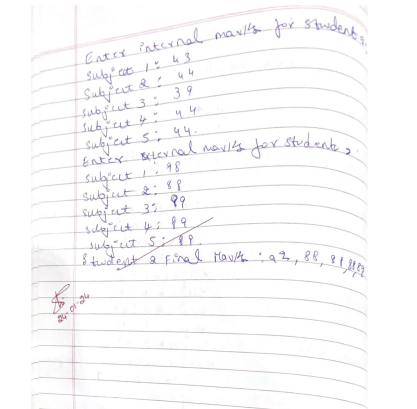 Enter internal marks for Student 2.
Subject 1: 43
Subject 2: 44
Subject 3: 39
Subject 4: 44
Subject 5: 44.
Enter external marks for Student 2
Subject 1: 98
Subject 2: 88
Subject 3: 99
Subject 4: 89
Subject 5: 89.
Student 2 Final Marks: 92, 88,
24-01-24